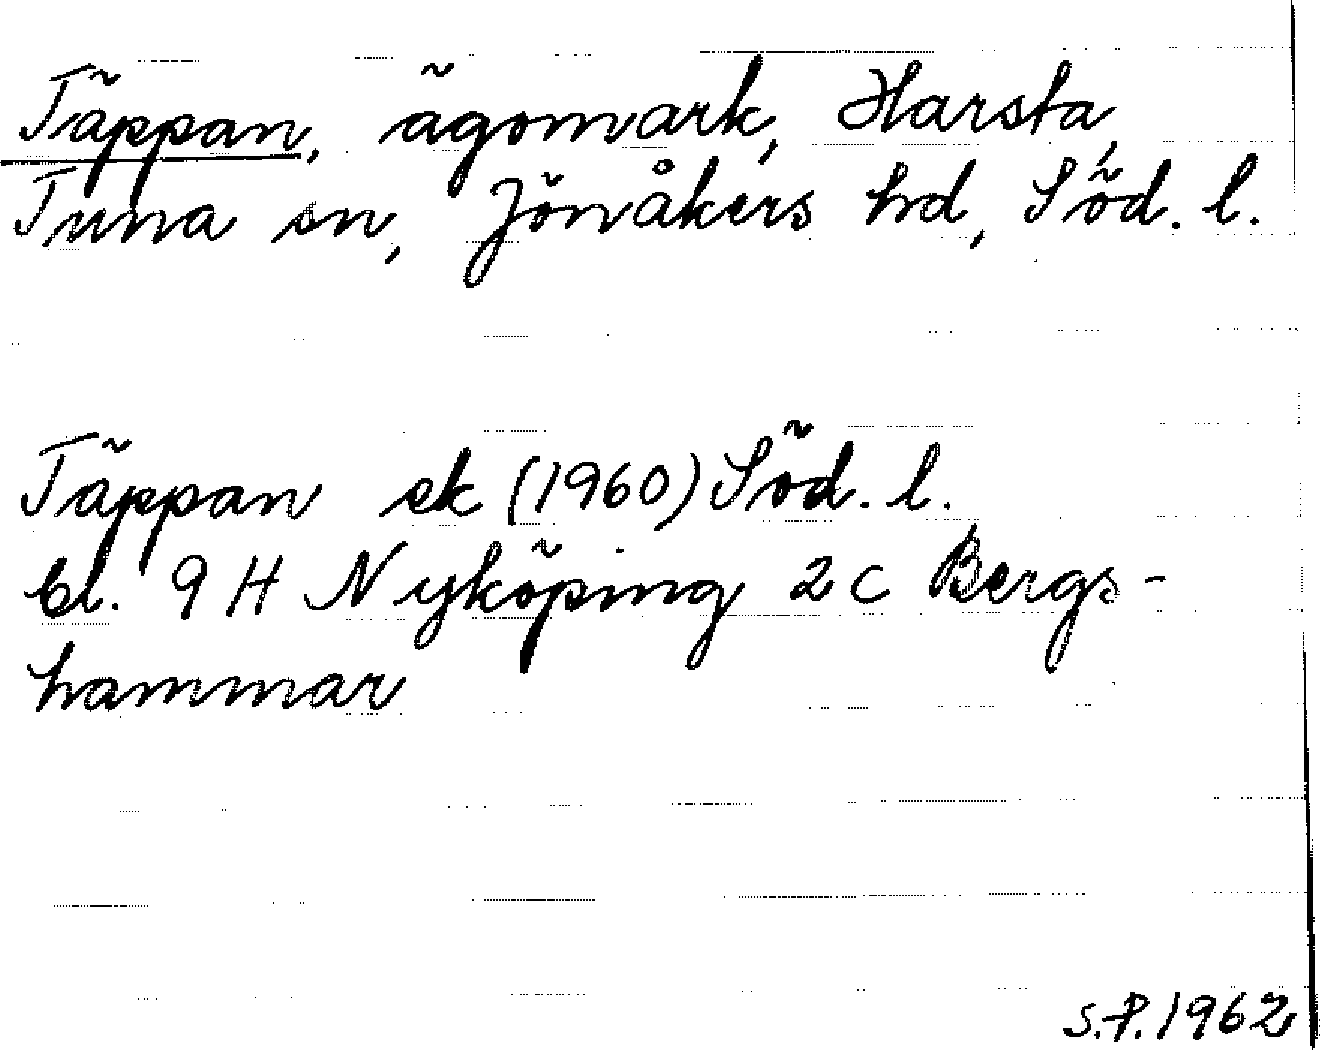 Täppan, ägomark, Harsta,
Tuna sn, Jönåkers hd, Söd. l.
Täppan ek (1960) Söd. l.
bl. 9 H Nyköping 2 c Bergs-
hammar
S.P. 1962